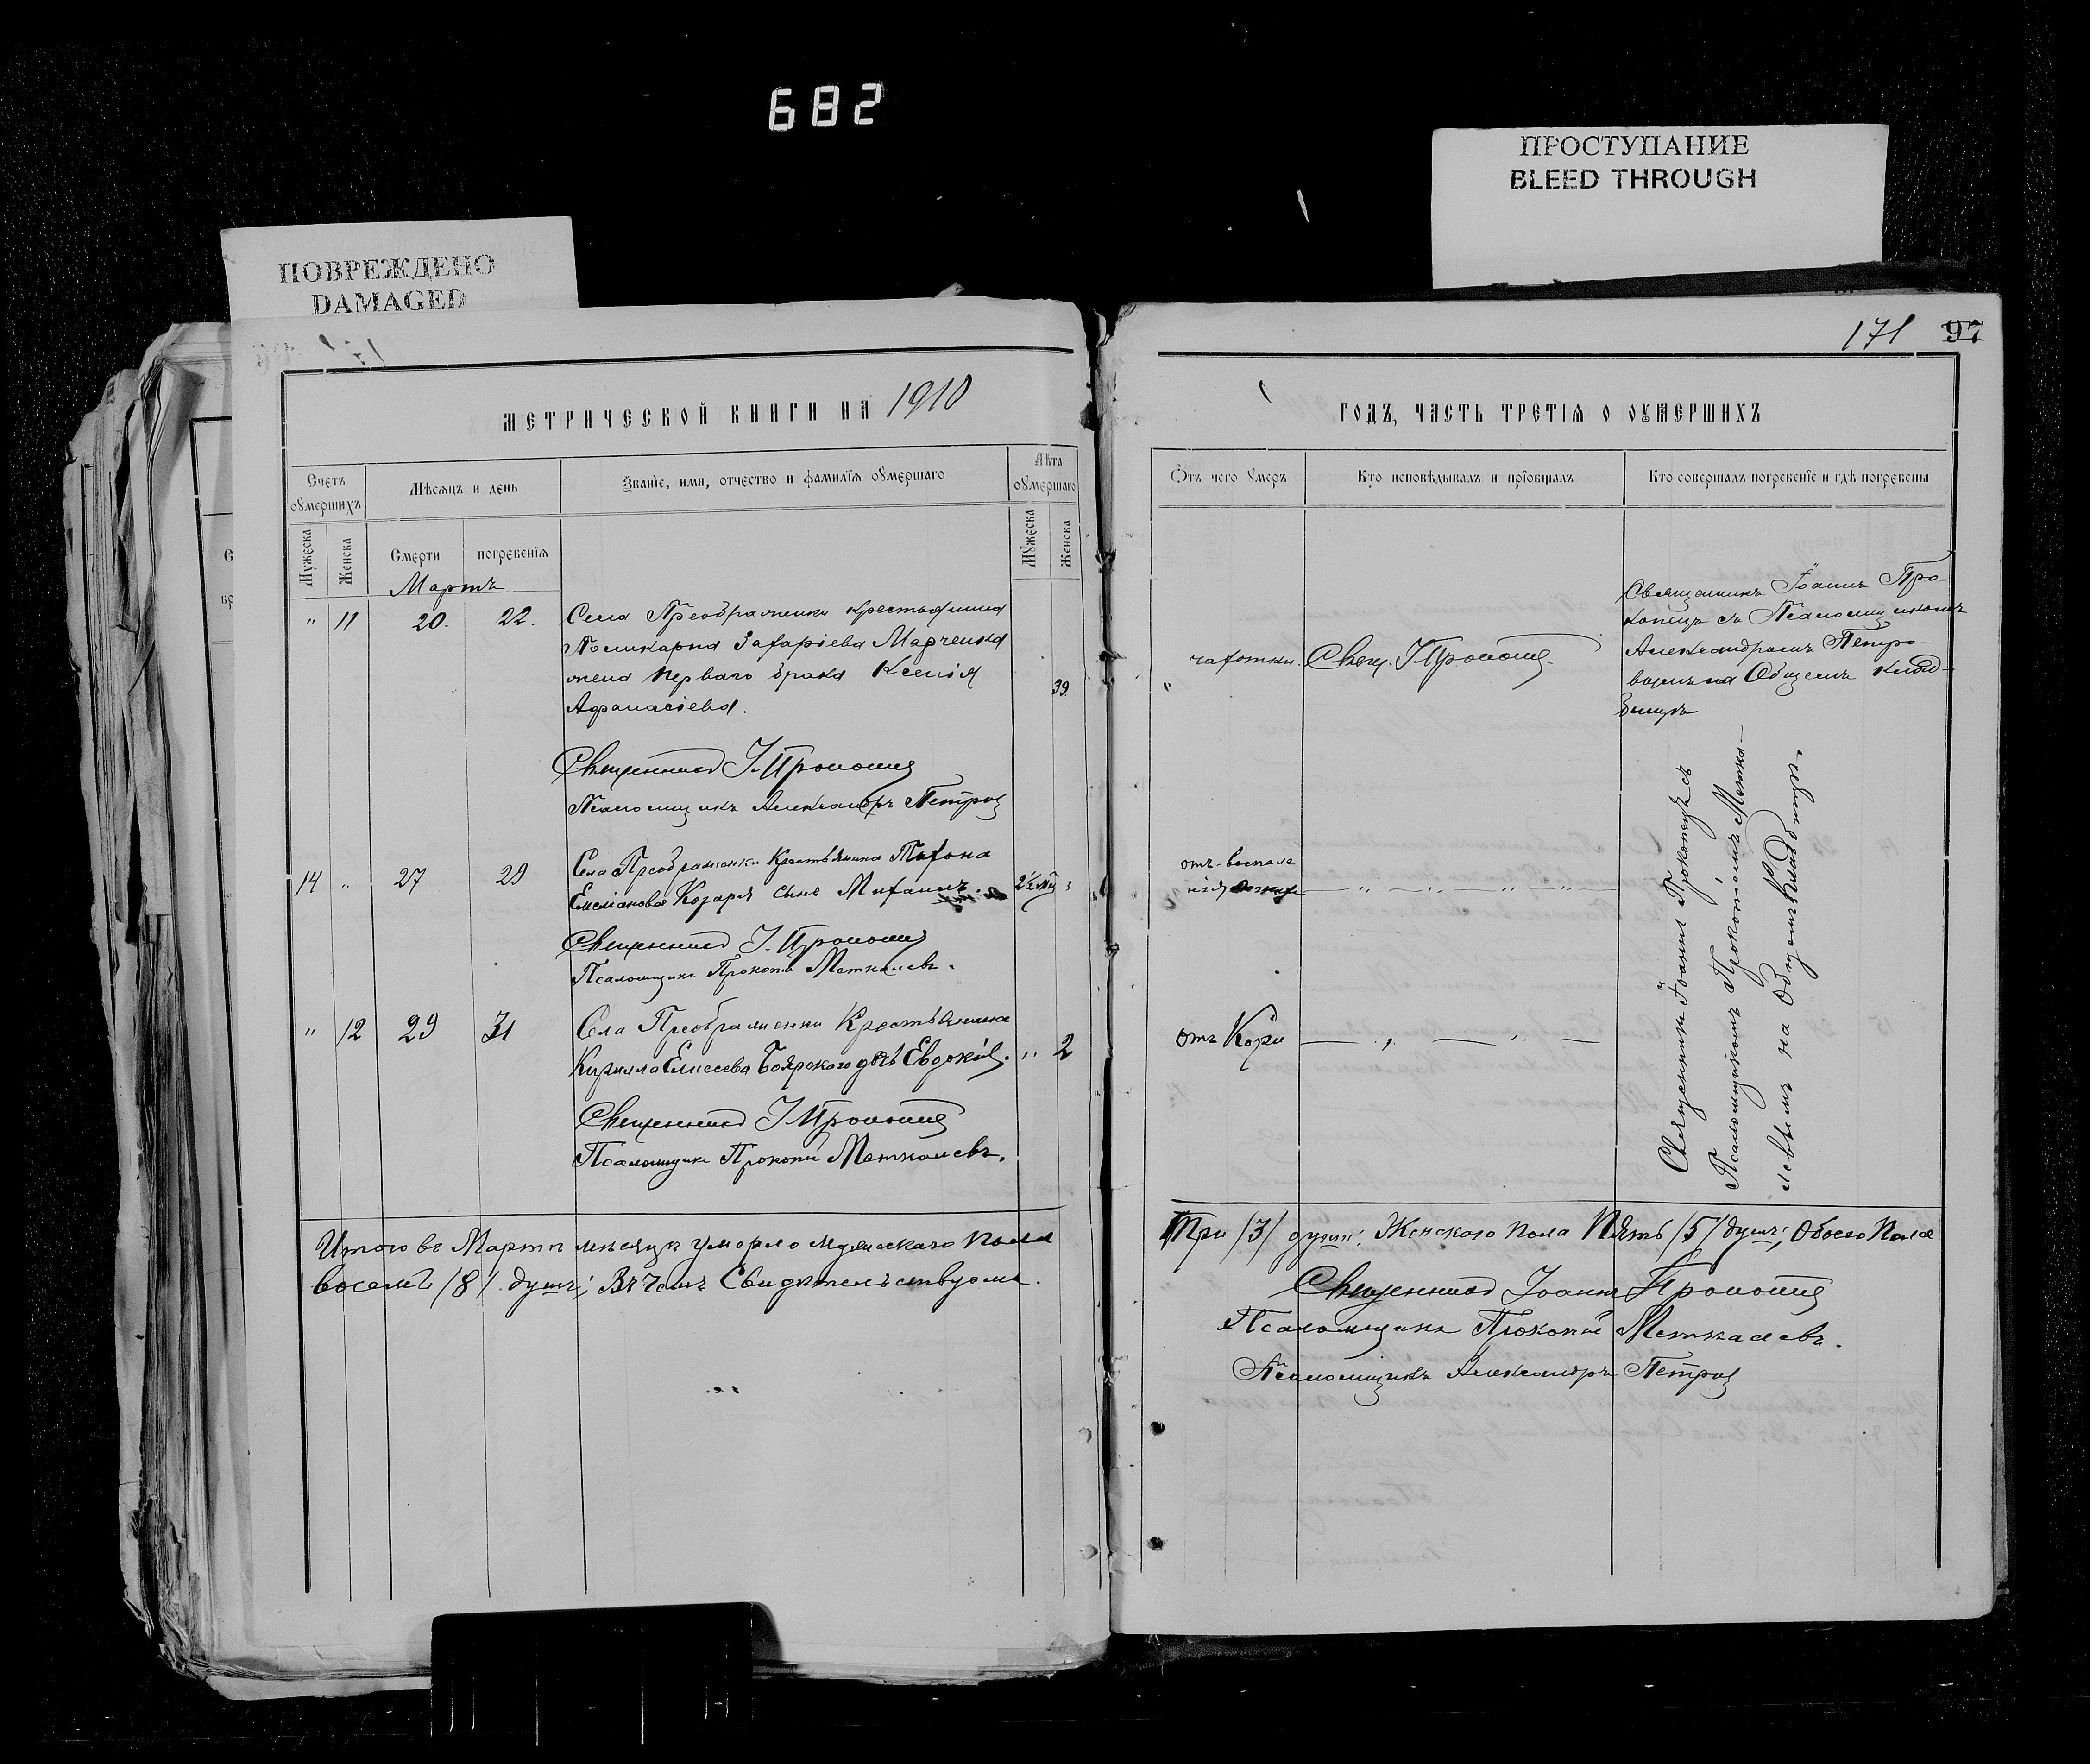 682
ПРОСТУПАНИЕ
BLEED THROUGH
ПОВРЕЖДЕНО
DAMAGED
171 97
МЕТРИЧЕСКОЙ КНИГИ НА 1910
Счетъ оумершихъ
Мѣсяцъ и день
Званіе, имя, отчество и фамилія оумершаго
Лѣта оумершаго
Мужеска
Женска
Смерти
погребенія
Мужеска
Женска
Мартъ
" 11 20. 22. Села Преображенки крестьянина
Поликарпа Захаріева Марченка
жена перваго брака Ксенія 39
Афанасіева.
Священникъ І. Прокопецъ
Псаломщикъ Александръ Петров
14 " 27 29 Села Преображенки Крестьянина Тихона
Емеліанова Козаря сынъ Михаилъ. 2½ "
Священникъ І. Прокопецъ
Псаломщикъ Прокопій Меткалевъ.
" 12 29 31 Села Преображенки Крестьянина
Кирилла Елисеева Боярскаго дочь Евдокія. " 2
Священникъ І. Прокопецъ
Псаломщикъ Прокопій Меткалевъ.
Итого въ Мартѣ мѣсяцѣ умерло мужескаго пола
восемь /8/ душъ; Въ чемъ Свидѣтельствуемъ.
ГОДЪ, ЧАСТЬ ТРЕТІЯ О ОУМЕРШИХЪ
Отъ чего умеръ
Кто исповѣдывалъ и пріобщалъ
Кто совершалъ погребеніе и гдѣ погребены
чахотки. Свящ. І. Прокопецъ.
Священникъ Іоаннъ Про-
копецъ съ Псаломщикомъ
Александромъ Петро-
вымъ на Общемъ клад-
бищѣ
отъ воспале
нія — " — " — " — " —
отъ Кори — " — " —
Священникъ Іоаннъ Прокопецъ съ
Псаломщикомъ Прокопіемъ Метка-
левымъ на Общемъ Кладбищѣ.
Три /3/ души; Женскаго пола Пять /5/ душъ; Обоего Пола
Священникъ Іоаннъ Прокопецъ
Псаломщикъ Прокопій Меткалевъ.
Псаломщикъ Александръ Петров